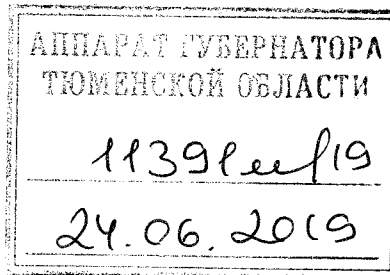 АППАРАТ ГУБЕРНАТОРА
ТЮМЕНСКОЙ ОБЛАСТИ
11391м/19
24.06.2019